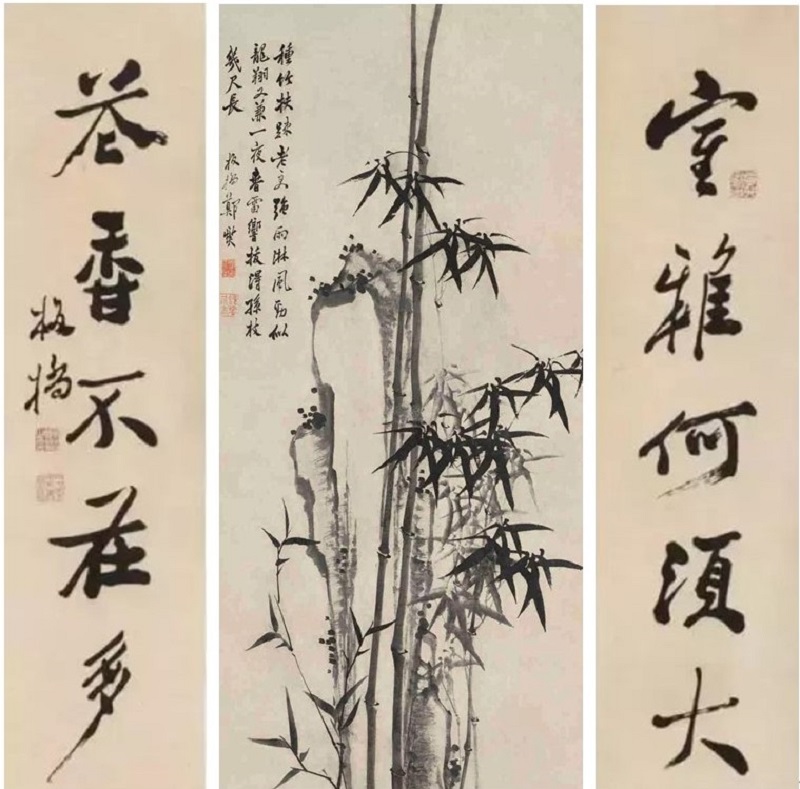 室雅何須大
種竹扶疎老更強雨淋風刮似
龍翔又兼一夜春雷響拔得孫枝
幾尺長
板橋鄭燮
花香不在多
板橋